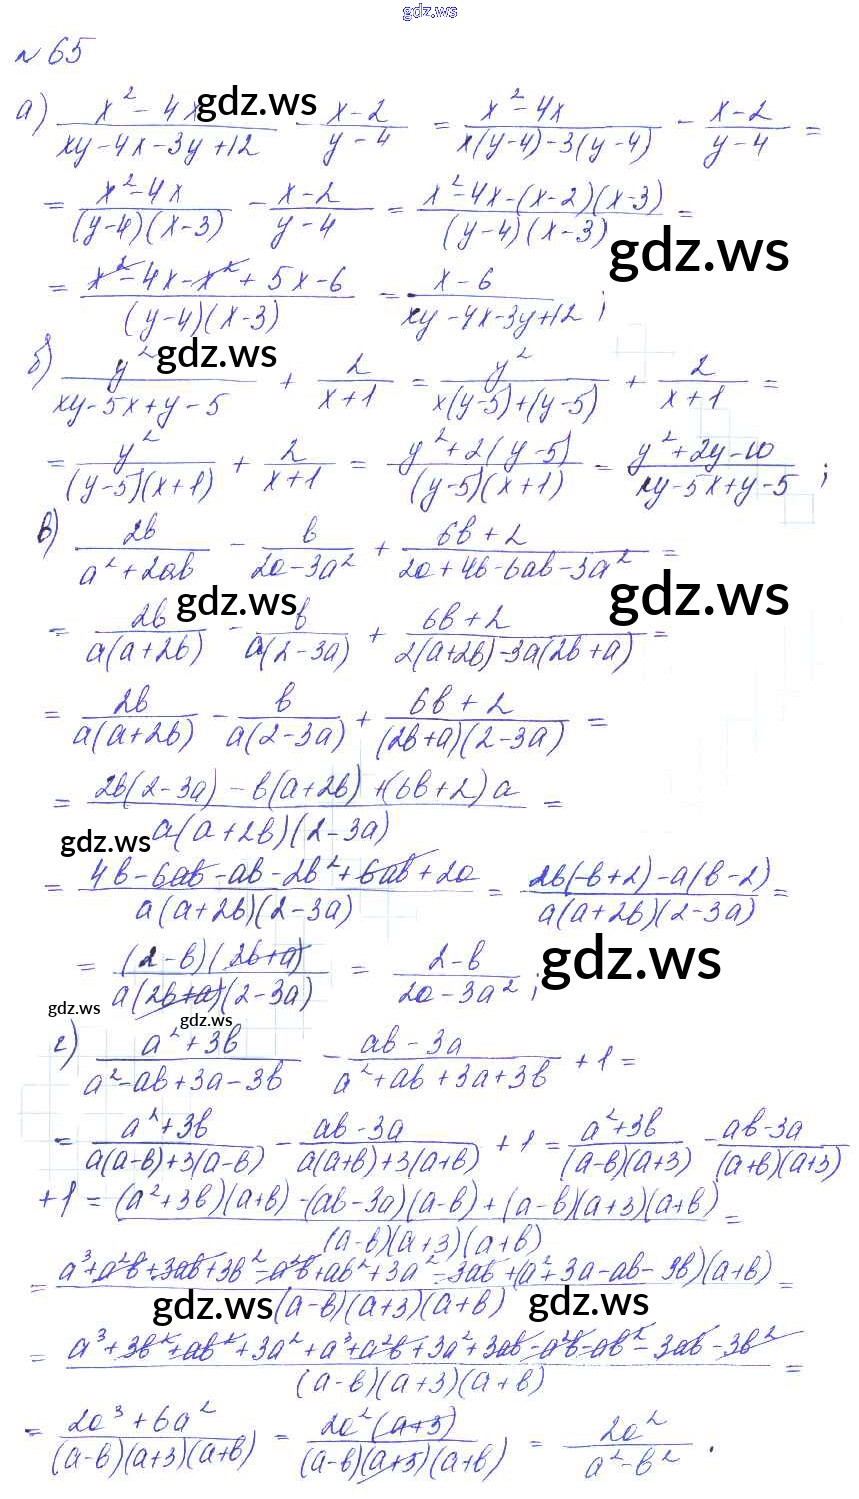 gdz.ws
№ 65
а) (x² - 4x)/(xy - 4x - 3y + 12) - (x - 2)/(y - 4) = (x² - 4x)/(x(y - 4) - 3(y - 4)) - (x - 2)/(y - 4) =
gdz.ws
= (x² - 4x)/((y - 4)(x - 3)) - (x - 2)/(y - 4) = (x² - 4x - (x - 2)(x - 3))/((y - 4)(x - 3)) =
gdz.ws
= (x² - 4x - x² + 5x - 6)/((y - 4)(x - 3)) = (x - 6)/(xy - 4x - 3y + 12) ;
gdz.ws
б) y²/(xy - 5x + y - 5) + 2/(x + 1) = y²/(x(y - 5) + (y - 5)) + 2/(x + 1) =
= y²/((y - 5)(x + 1)) + 2/(x + 1) = (y² + 2(y - 5))/((y - 5)(x + 1)) = (y² + 2y - 10)/(xy - 5x + y - 5) ;
в) 2b/(a² + 2ab) - b/(2a - 3a²) + (6b + 2)/(2a + 4b - 6ab - 3a²) =
gdz.ws gdz.ws
= 2b/(a(a + 2b)) - b/(a(2 - 3a)) + (6b + 2)/(2(a + 2b) - 3a(2b + a)) =
= 2b/(a(a + 2b)) - b/(a(2 - 3a)) + (6b + 2)/((2b + a)(2 - 3a)) =
= (2b(2 - 3a) - b(a + 2b) + (6b + 2)a)/(a(a + 2b)(2 - 3a)) =
gdz.ws
= (4b - 6ab - ab - 2b² + 6ab + 2a)/(a(a + 2b)(2 - 3a)) = (2b(-b + 2) - a(b - 2))/(a(a + 2b)(2 - 3a)) =
gdz.ws
= ((2 - b)(2b + a))/(a(2b + a)(2 - 3a)) = (2 - b)/(2a - 3a²) ;
gdz.ws gdz.ws
г) (a² + 3b)/(a² - ab + 3a - 3b) - (ab - 3a)/(a² + ab + 3a + 3b) + 1 =
= (a² + 3b)/(a(a - b) + 3(a - b)) - (ab - 3a)/(a(a + b) + 3(a + b)) + 1 = (a² + 3b)/((a - b)(a + 3)) - (ab - 3a)/((a + b)(a + 3))
+ 1 = ((a² + 3b)(a + b) - (ab - 3a)(a - b) + (a - b)(a + 3)(a + b))/((a - b)(a + 3)(a + b)) =
= (a³ + a²b + 3ab + 3b² - a²b + ab² + 3a² - 3ab + (a² + 3a - ab - 3b)(a + b))/((a - b)(a + 3)(a + b)) =
gdz.ws gdz.ws
= (a³ + 3b² + ab² + 3a² + a³ + a²b + 3a² + 3ab - a²b - ab² - 3ab - 3b²)/((a - b)(a + 3)(a + b)) =
= (2a³ + 6a²)/((a - b)(a + 3)(a + b)) = (2a²(a + 3))/((a - b)(a + 3)(a + b)) = 2a²/(a² - b²) .